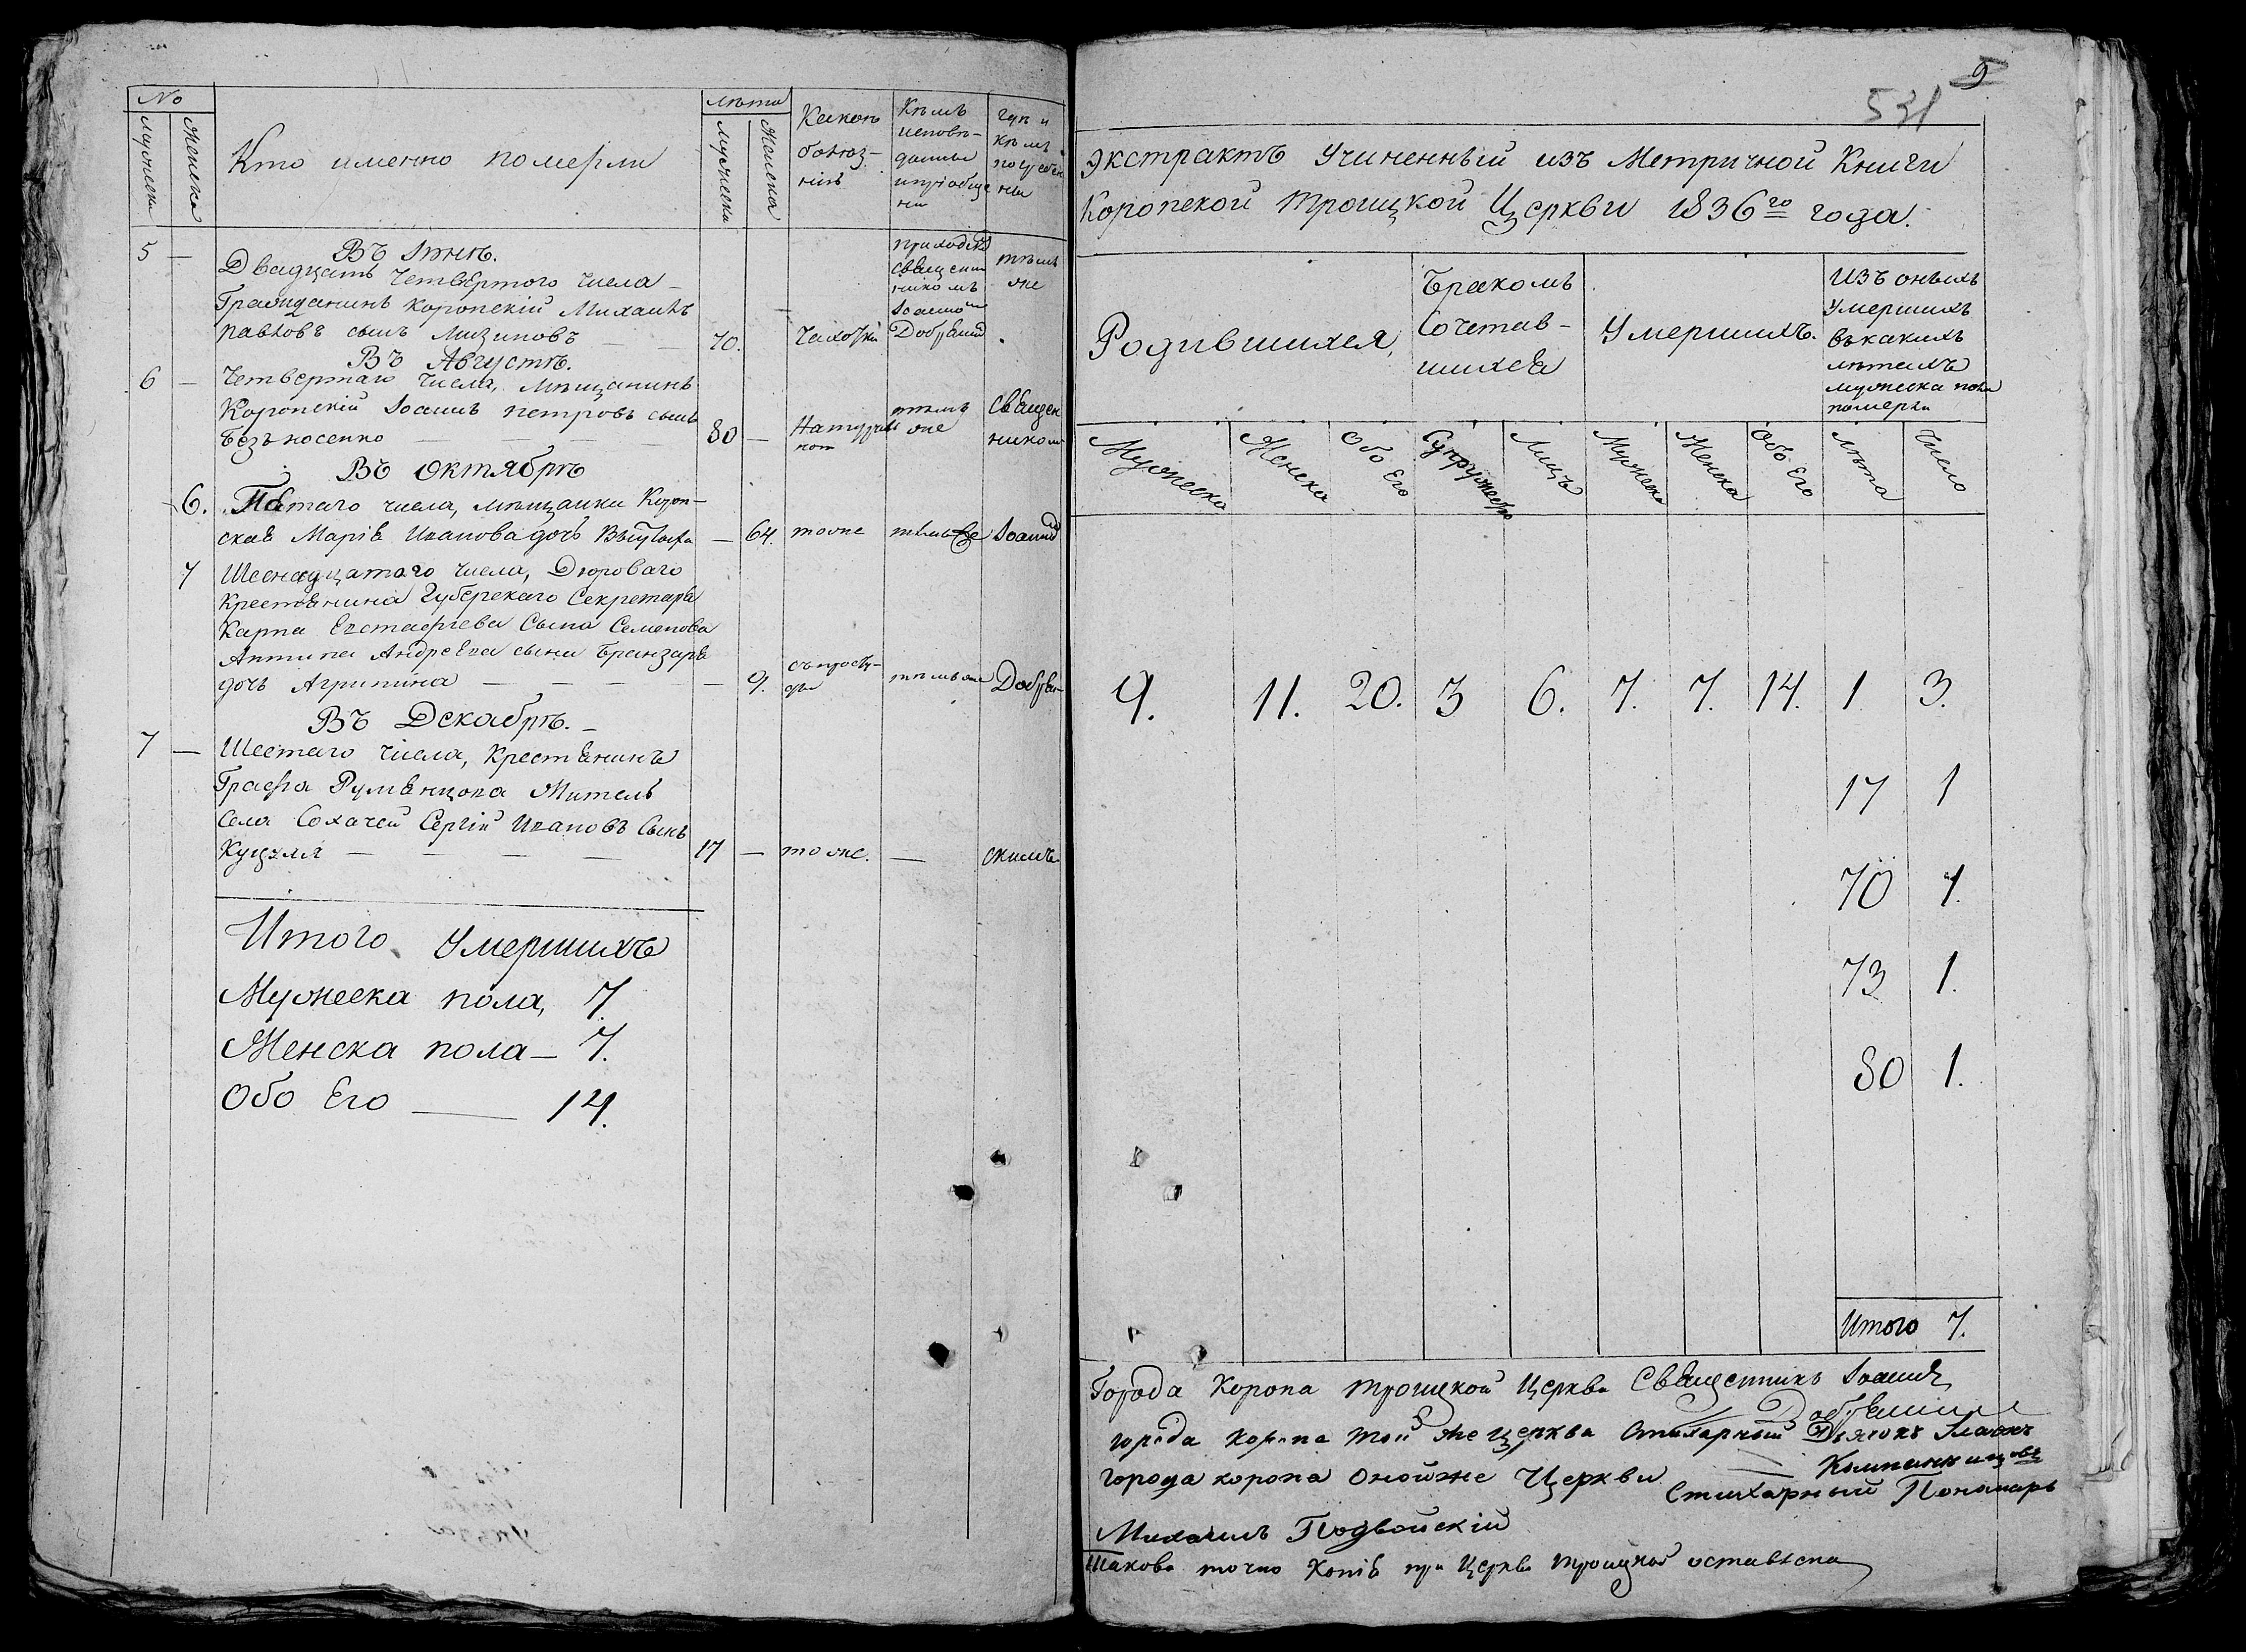 No
Мужеска
Женска
Кто именно померли
лѣта
Мужеска
Женска
Какою
болѣз-
нію
Кѣмъ
исповѣ-
даны
и приобще
ны
Гдѣ и
кѣмъ
погребе
ны
Въ Iюнѣ.
5 — Двадцать четвертого числа —
Гражданинъ Коропскiй Михаилъ
Павловъ сынъ Лизиновъ — — 70. чахотки
приходскъ
священ
никомъ
Iоанномъ
Добр
тѣмъ
же
Въ Августѣ.
6 — Четвертаго числа, мѣщанинъ
Коропскiй Iоаннъ Петровъ сынъ
Безъносенко — — — 80 — Натураль
ною
тѣмъ
же
священ
никомъ
Въ Октябрѣ
6. Пятаго числа, мѣщанка Короп-
ская Марiя Иванова дочь — 64. тоже тѣмъ же Iоанномъ
7 Шеснадцатого числа, Дворового
Крестянина Губерскаго Секретаря
Карпа Евстафiева Сына Семенова
Антипа Андреева сына Бранзаря
дочь Агрипина — — — — 9. отъ просту-
ды тѣмъ же
Въ Декабрѣ. —
7 — Шестаго числа, Крестянинъ
Графа Румянцова Житель
Села Сохачей Сергiй Ивановъ Сынъ
— — — — 17 — тоже. —
Итого Умершихъ
Мужеска пола, 7.
Женска пола — 7.
Обо Его — 14.
9
531
Экстрактъ Учиненный изъ Метричной Книги
Коропской Троицкой Церкви 1836го года.
Родившихся,
Бракомъ
Сочетав-
шихся
Умершихъ.
Изъ оныхъ
Умершихъ
въ какихъ
лѣтахъ
мужеска пола
померли
Мужеска
Женска
Обо Его
Супружествъ
Лицъ
Мужеска
Женска
Обо Его
Лѣта
Число
9. 11. 20. 3 6. 7. 7. 14. 1 3.
17 1
70 1.
73 1.
80 1.
Итого 7.
Города Коропа Троицкой Церкви Священникъ Iоаннъ
города Коропа той же церкви Стихарный Дьячокъ
города Коропа оной же Церкви Стихарный Пономарь
Михаилъ Подвойскiй
Такова точно Копiя при Церкви Троицкой оставлена